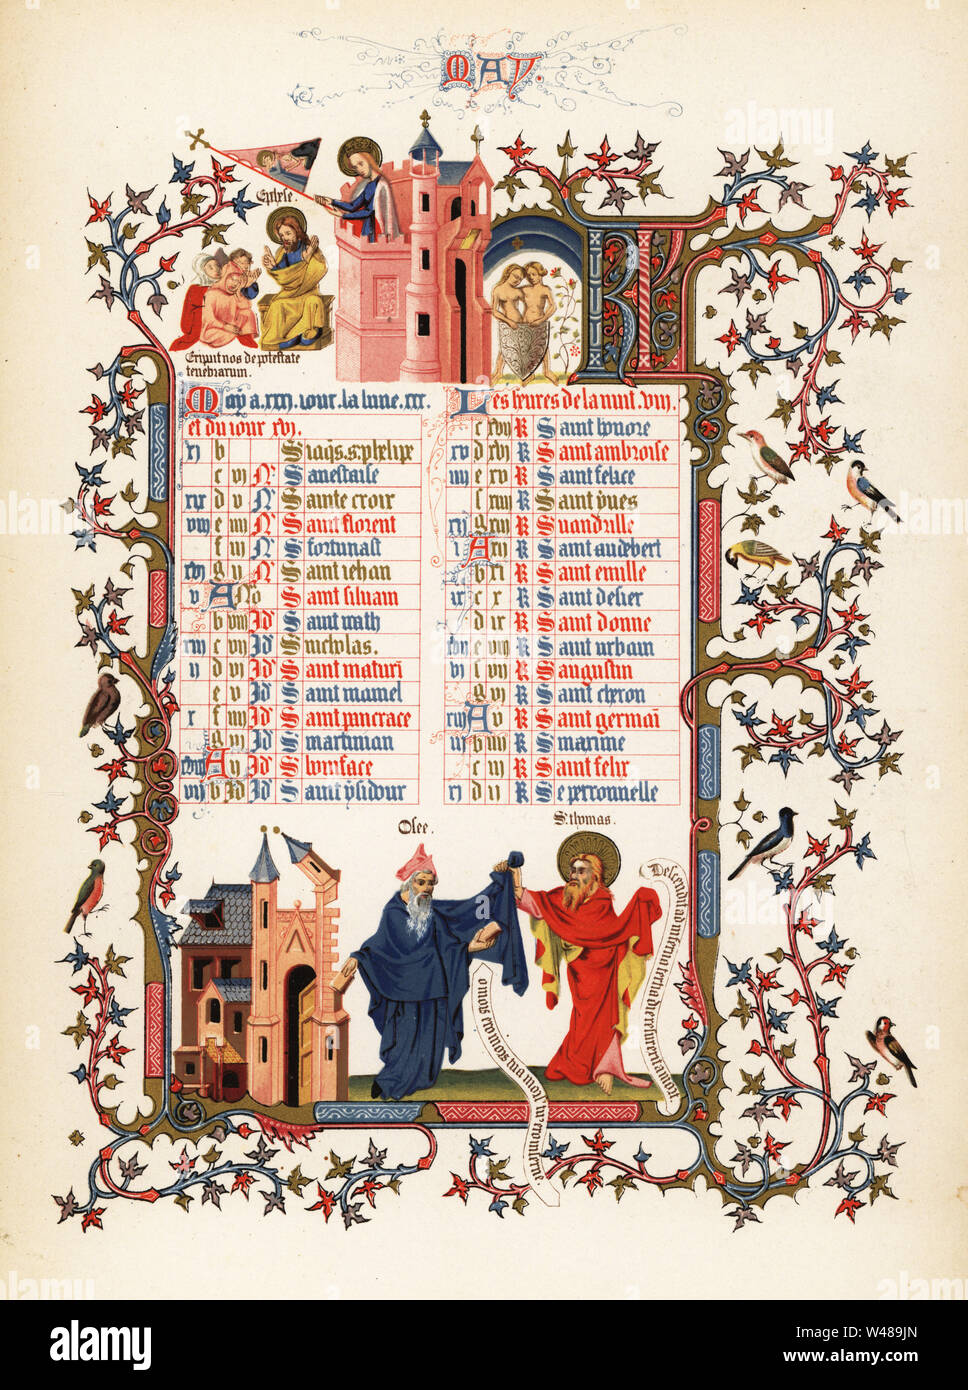 MAY.
Ephese.
Eriput nos de potestate
tenebrarum.
KL
May a. xxxi. iour. la lune. xxx.
et du iour xvi.
xi b S iaq̄s. s. phelipe
c vi N S anestaise
xix d v N Sainte croix
viii e iiii N Saint florent
f iii N S fortunast
xvi g ii N Saint iehan
v A No Saint siluain
b viii Id Saint math
xiii c vii Id S nicholas.
ii d vi Id Saint maturī
e v Id Saint mamel
x f iiii Id Saint pancrace
g iii Id S martinian
xviii A ii Id S boniface
vii b Id Id Saint ysidour
Les heures de la nuit. viii.
c xvii K Saint honore
xv d xvi K Saint ambroise
iiii e xv K Saint felice
f xiiii K Saint yues
xii g xiii K S uandrille
i A xii K Saint audebert
b xi K Saint emille
ix c x K Saint desier
d ix K Saint donne
xvii e viii K Saint urbain
vi f vii K S augustin
g vi K Saint cheron
xiiii A v K Saint germaī
iii b iiii K S maxime
c iii K Saint felix
xi d ii K Se perronnelle
Osee.
St. thomas.
O mors ero mors tua morsus
Descendit ad inferna tertia die resurrexit a mortuis
alamy
Image ID: W489JN
www.alamy.com